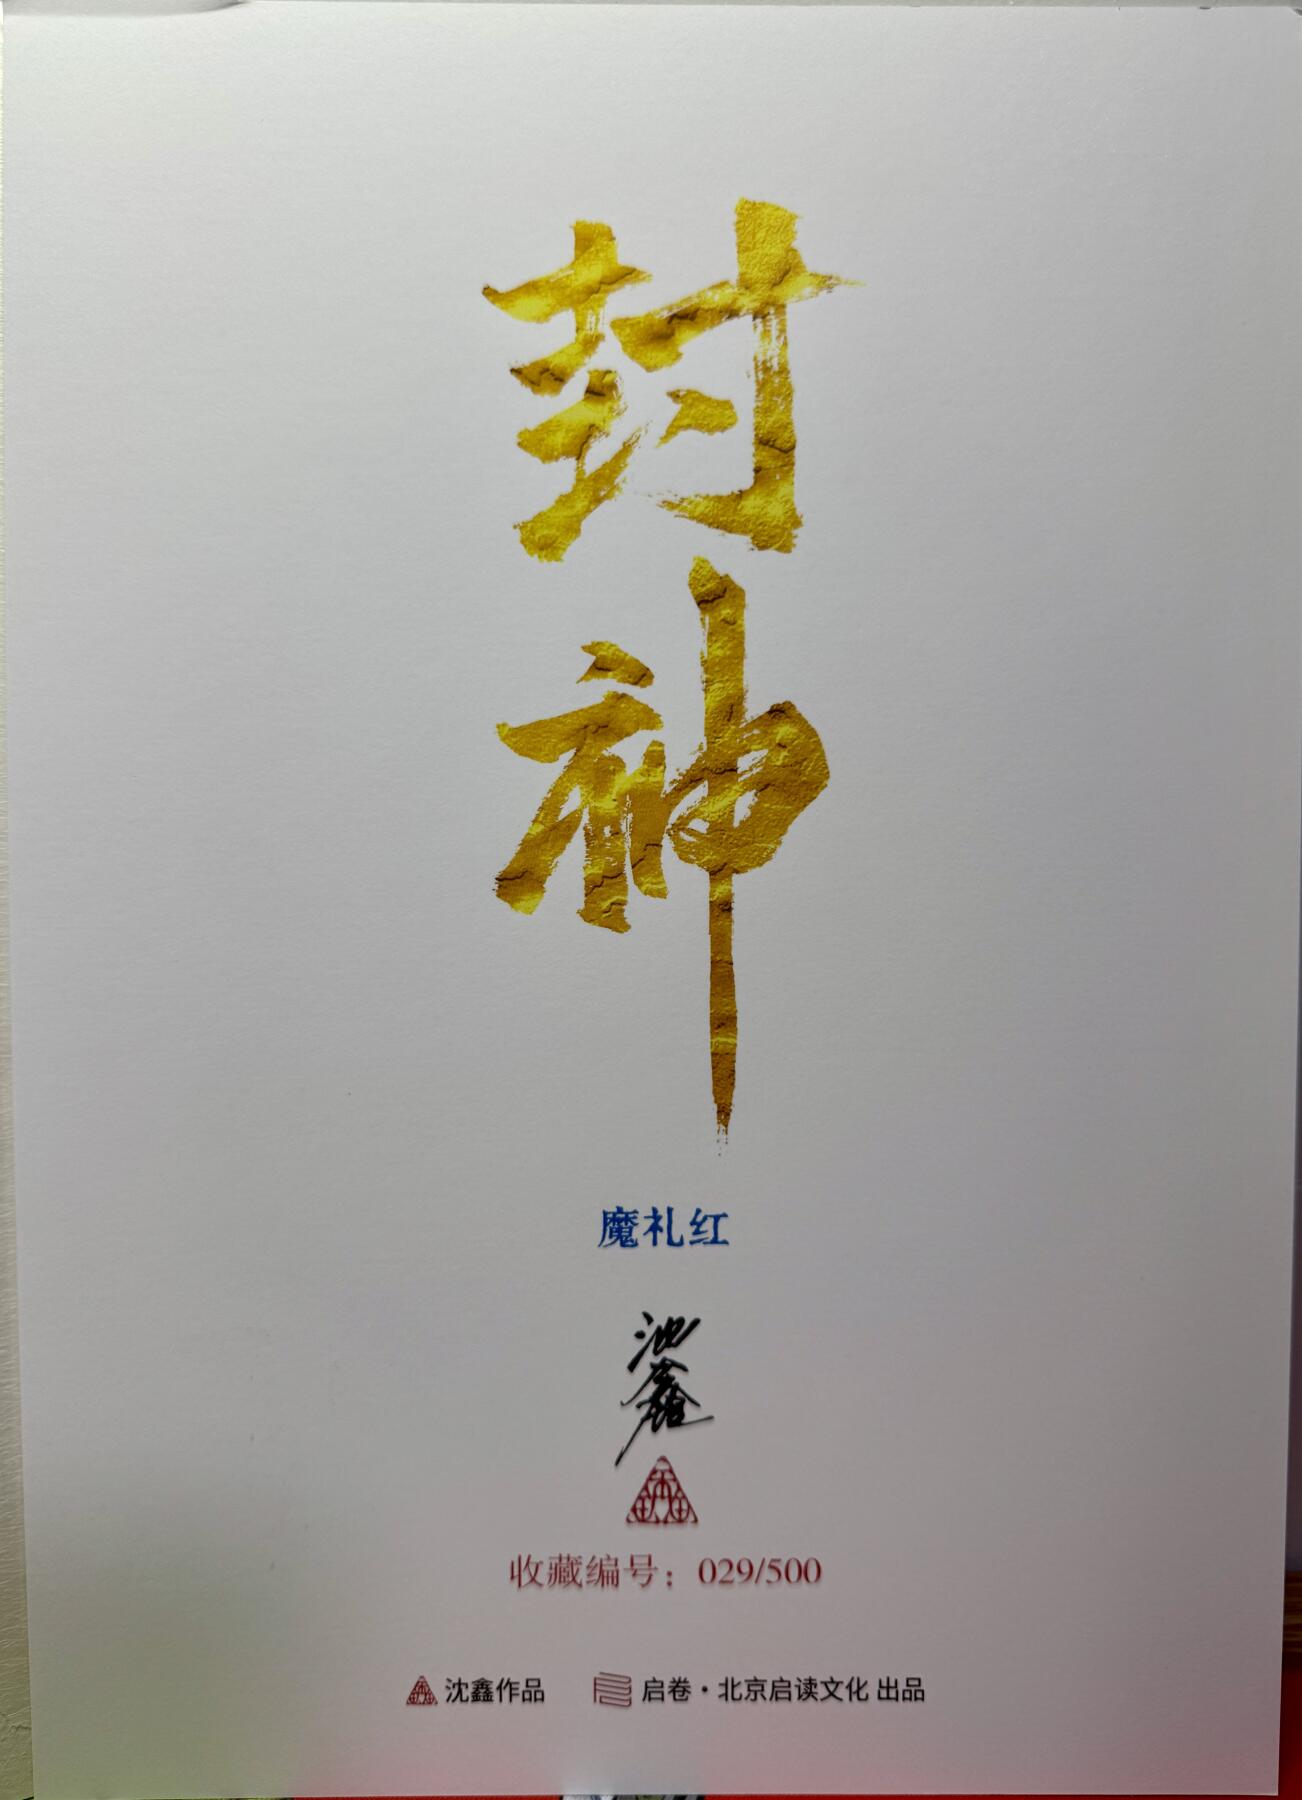 封神
魔礼红
沈鑫
收藏编号：029/500
沈鑫作品 启卷·北京启读文化 出品